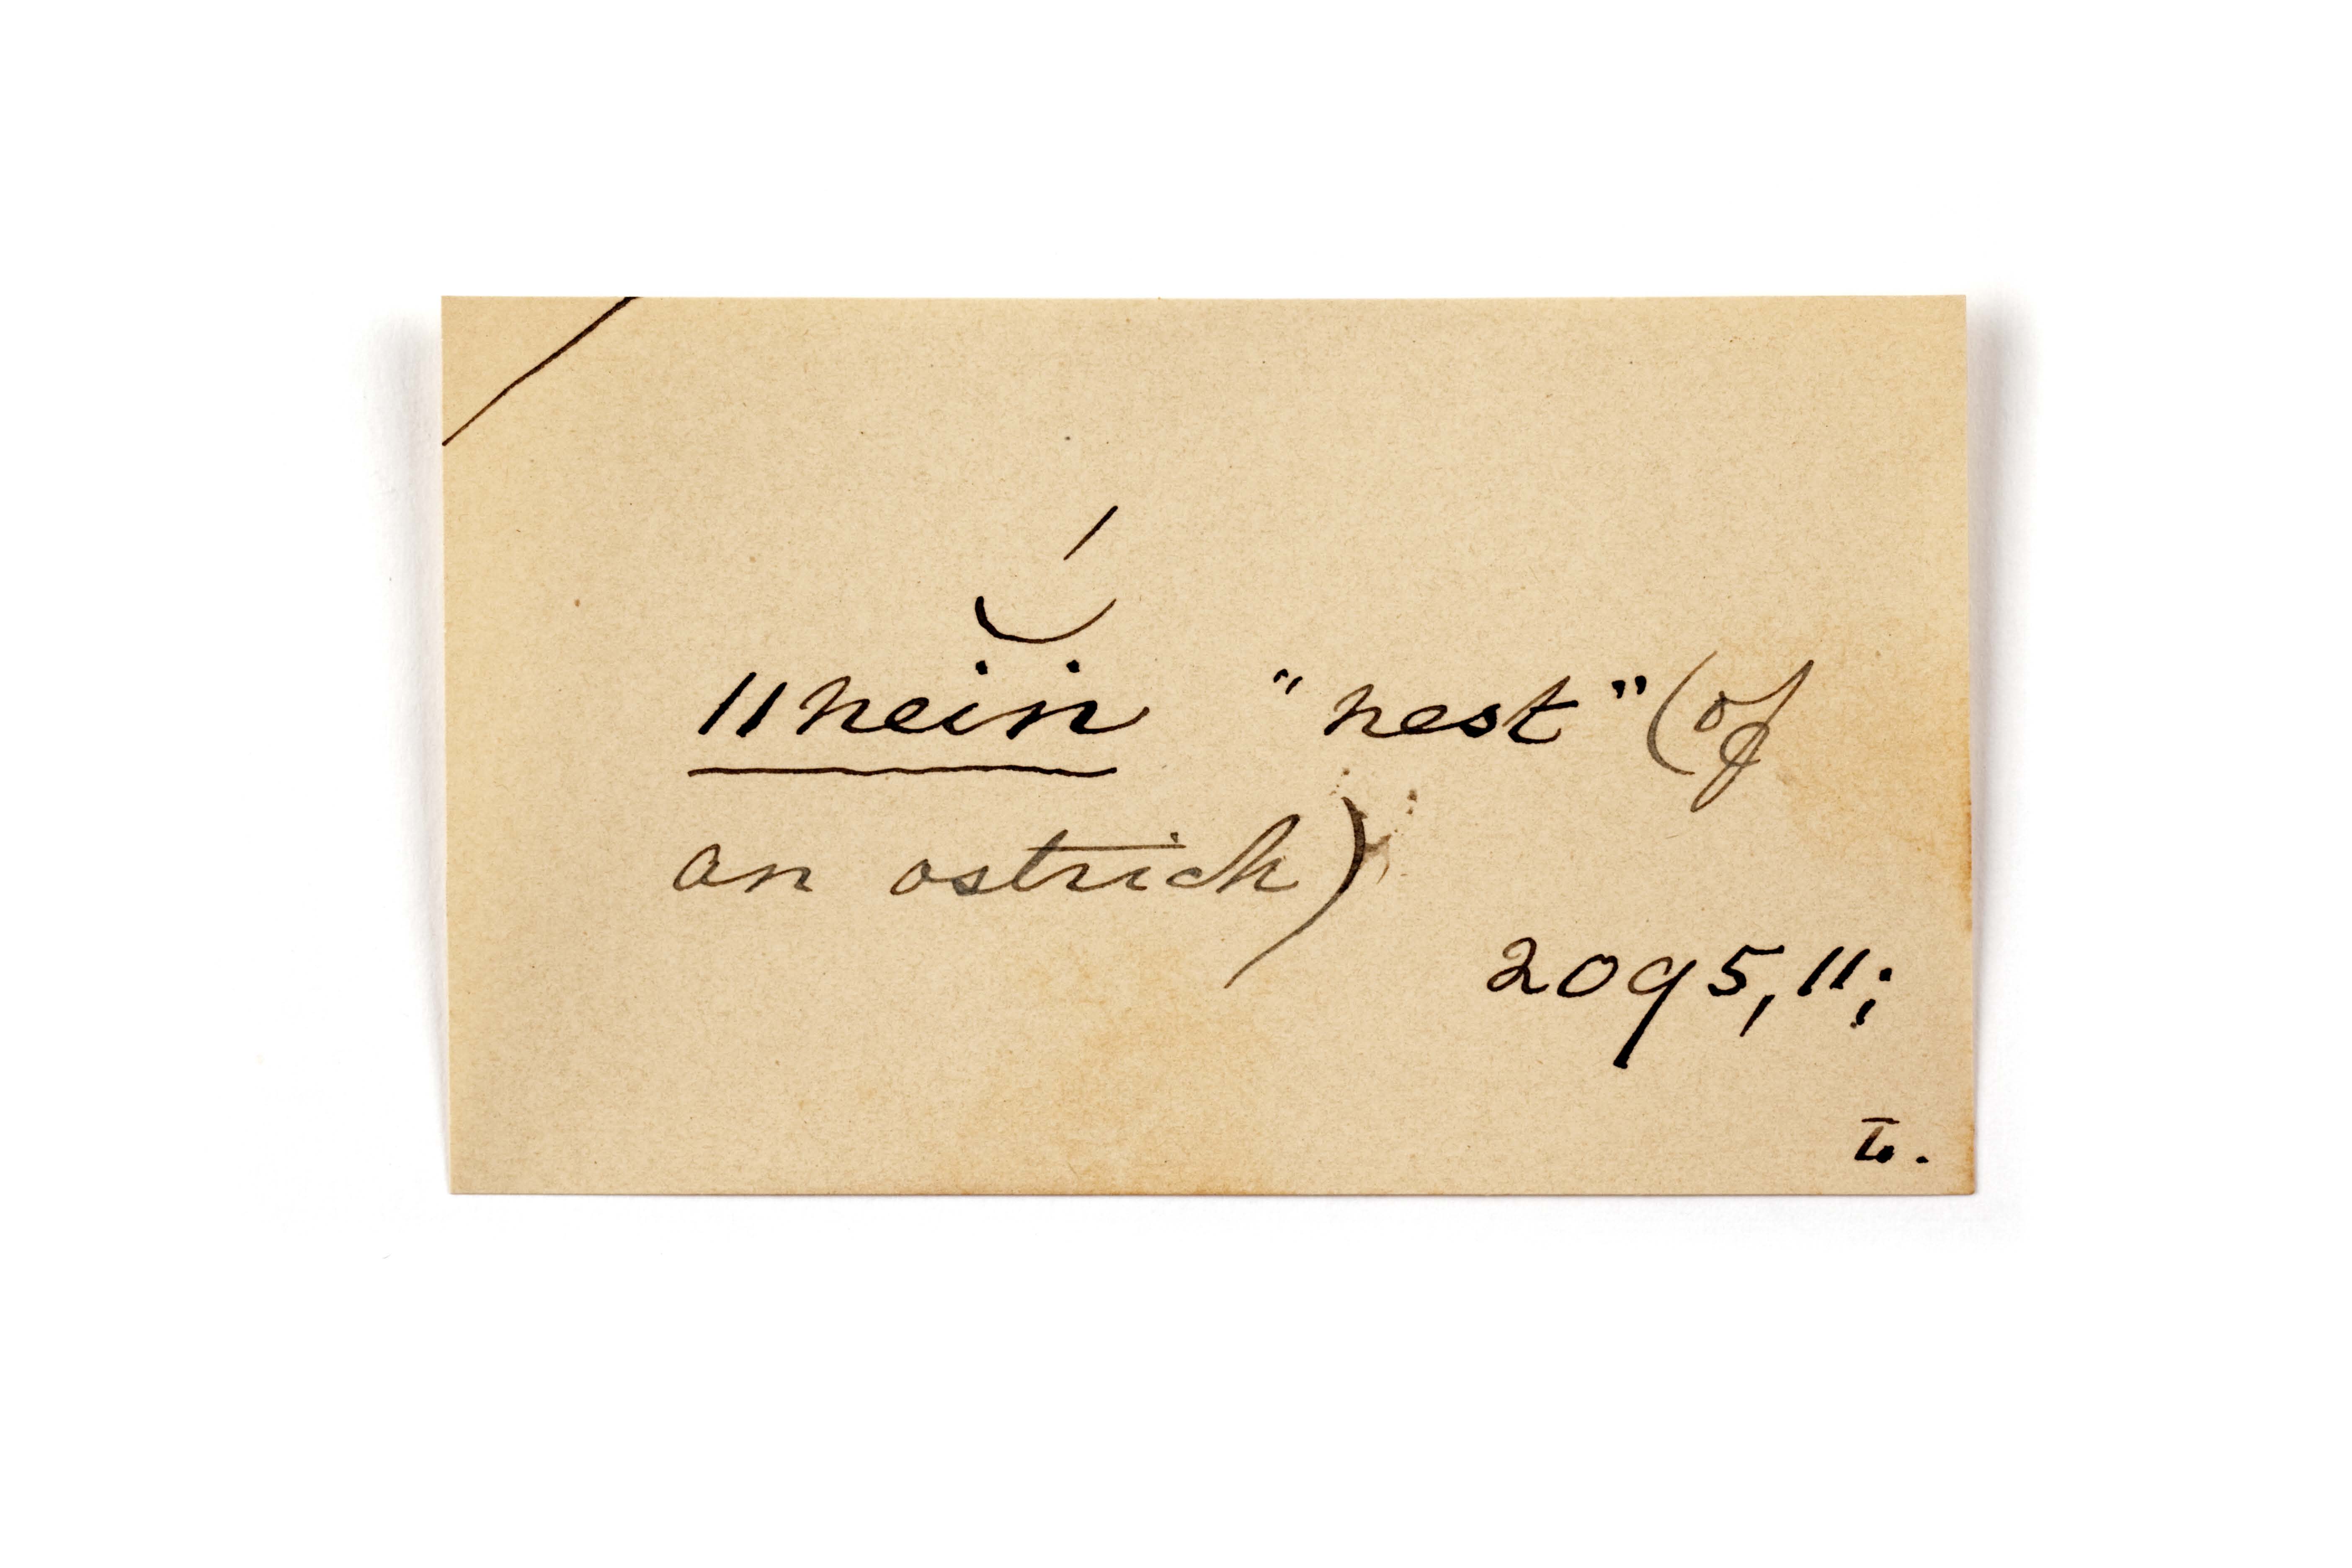 ǁneĭ́ṅ "nest" (of
an ostrich)
2095, 11;